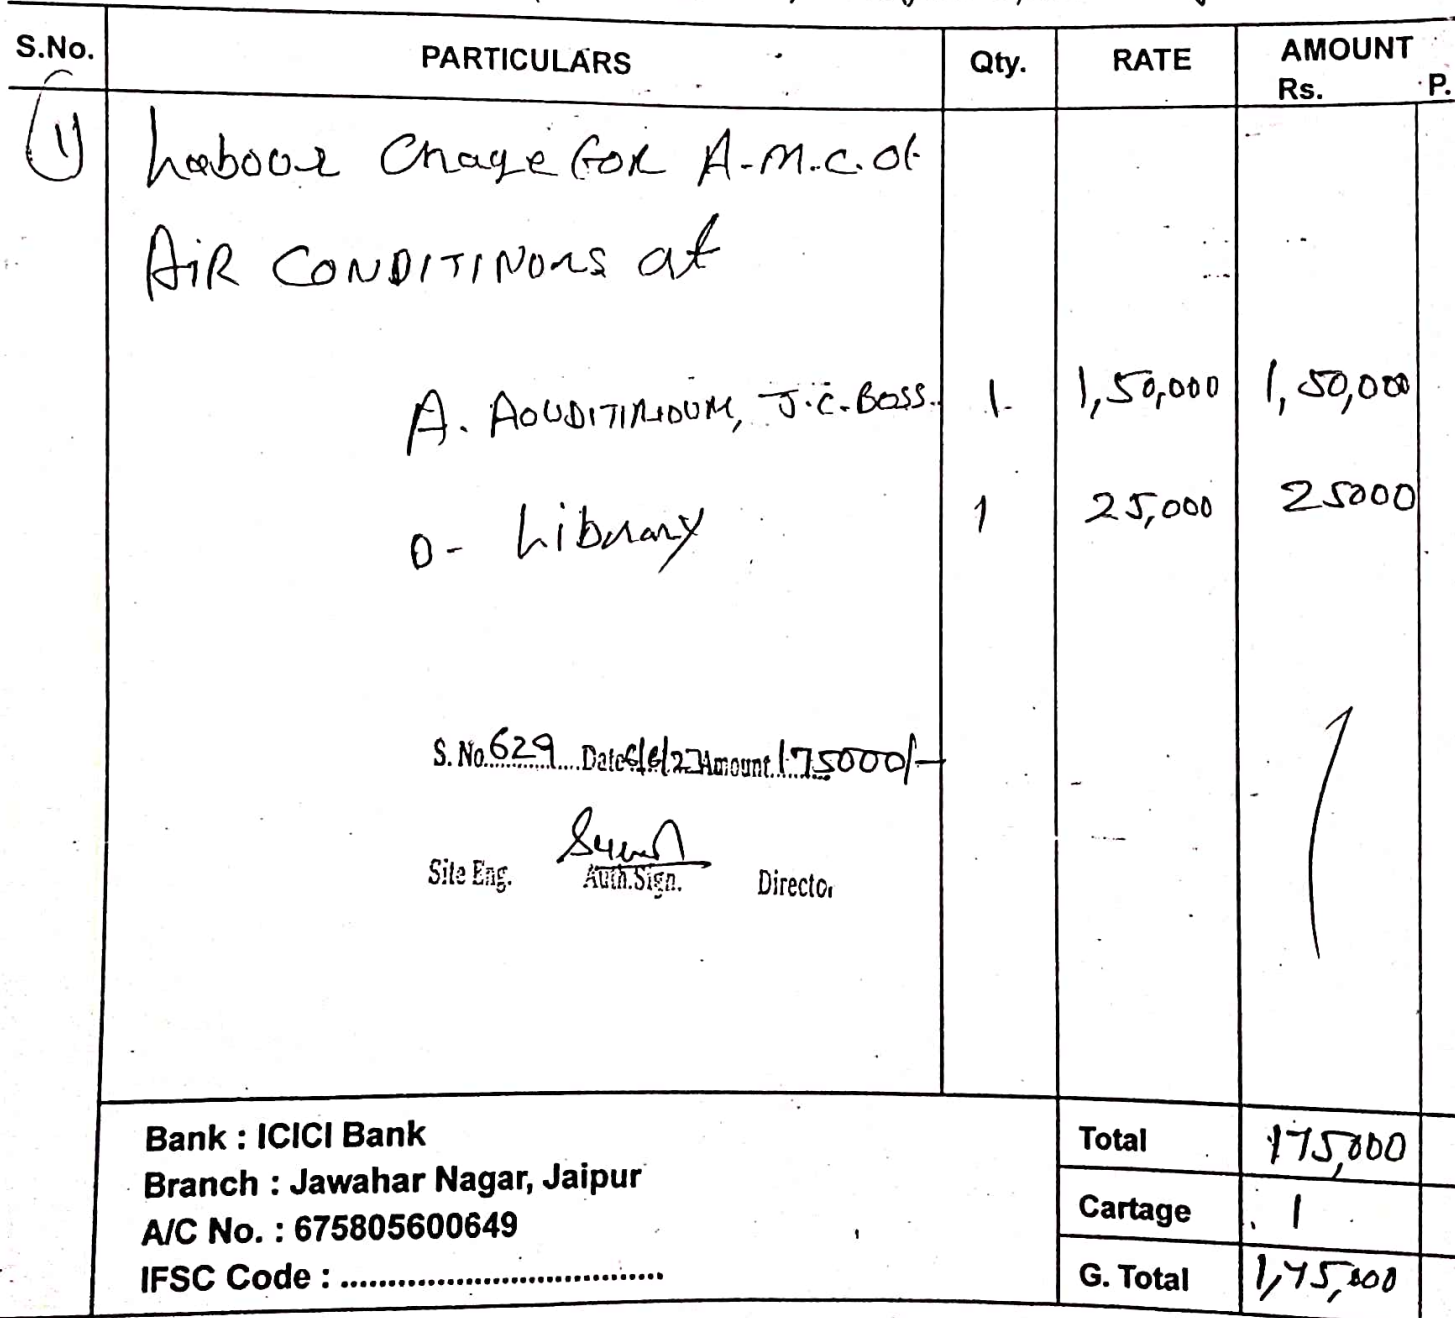 S.No. PARTICULARS Qty. RATE AMOUNT
Rs. P.
1) Laboour Chage for A.M.C. of
AiR CONDITINORS at
A. AOUDITIRIOUM, J.C. Boss. 1. 1,50,000 1,50,000
0- Library 1 25,000 25000
S. No. 629 Date 6/6/23 Amount 175000/-
Site Eng. Auth.Sign. Director
Bank : ICICI Bank Total 175,000
Branch : Jawahar Nagar, Jaipur
A/C No. : 675805600649 Cartage /
IFSC Code : .................................... G. Total 1,75,000